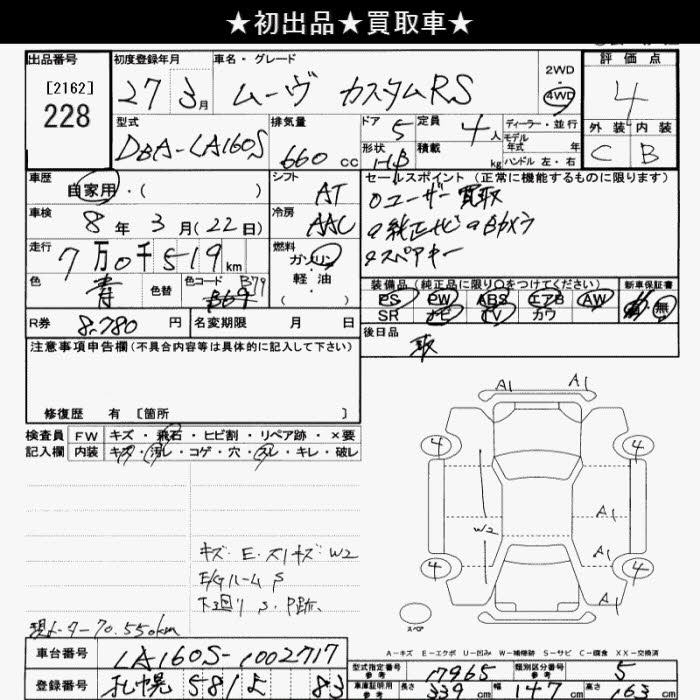 ★初出品★買取車★
出品番号 初度登録年月 車名・グレード 評価点
[2162]
228
27 3月 ムーヴ カスタムRS 2WD 4WD 4
型式 排気量 ドア 定員 ディーラー・並行 外装 内装
DBA-LA160S 660cc 5 4人 モデル年式 年 C B
形状 H/B 積載 kg ハンドル 左・右
車歴 自家用・( ) シフト AT
セールスポイント (正常に機能するものに限ります)
ユーザー買取
純正ナビ Bカメラ
スペアキー
車検 8年3月(22日) 冷房 AAC
走行 7万0千519km 燃料 ガソリン・軽油・( )
色 青 色替 色コード B79 B69
装備品(純正品に限り○をつけてください) 新車保証書
PS PW ABS エアB AW 有・無
SR ナビ TV カワ
R券 8,780円 名変期限 月 日
後日品 取
注意事項申告欄(不具合内容等は具体的に記入して下さい)
修復歴 有 [箇所 ]
検査員 FW キズ・飛石・ヒビ割・リペア跡・×要
記入欄 内装 キズ・汚レ・コゲ・穴・スレ・キレ・破レ
A1 A1
4 4
W2 A1
A1
4 4
A1
スペア
キズ・E・スリキズ・W2
E/Gルーム S
下回り S、P跡、
現メーター70.550km
A-キズ E-エクボ U-凹み W-補修跡 S-サビ C-腐食 XX-交換済
車台番号 LA160S-1002717
登録番号 札幌 581 よ 83
型式指定番号 参考 17965 類別区分番号 参考 5
車庫証明用 参考 長さ 339cm 幅 147cm 高さ 163cm